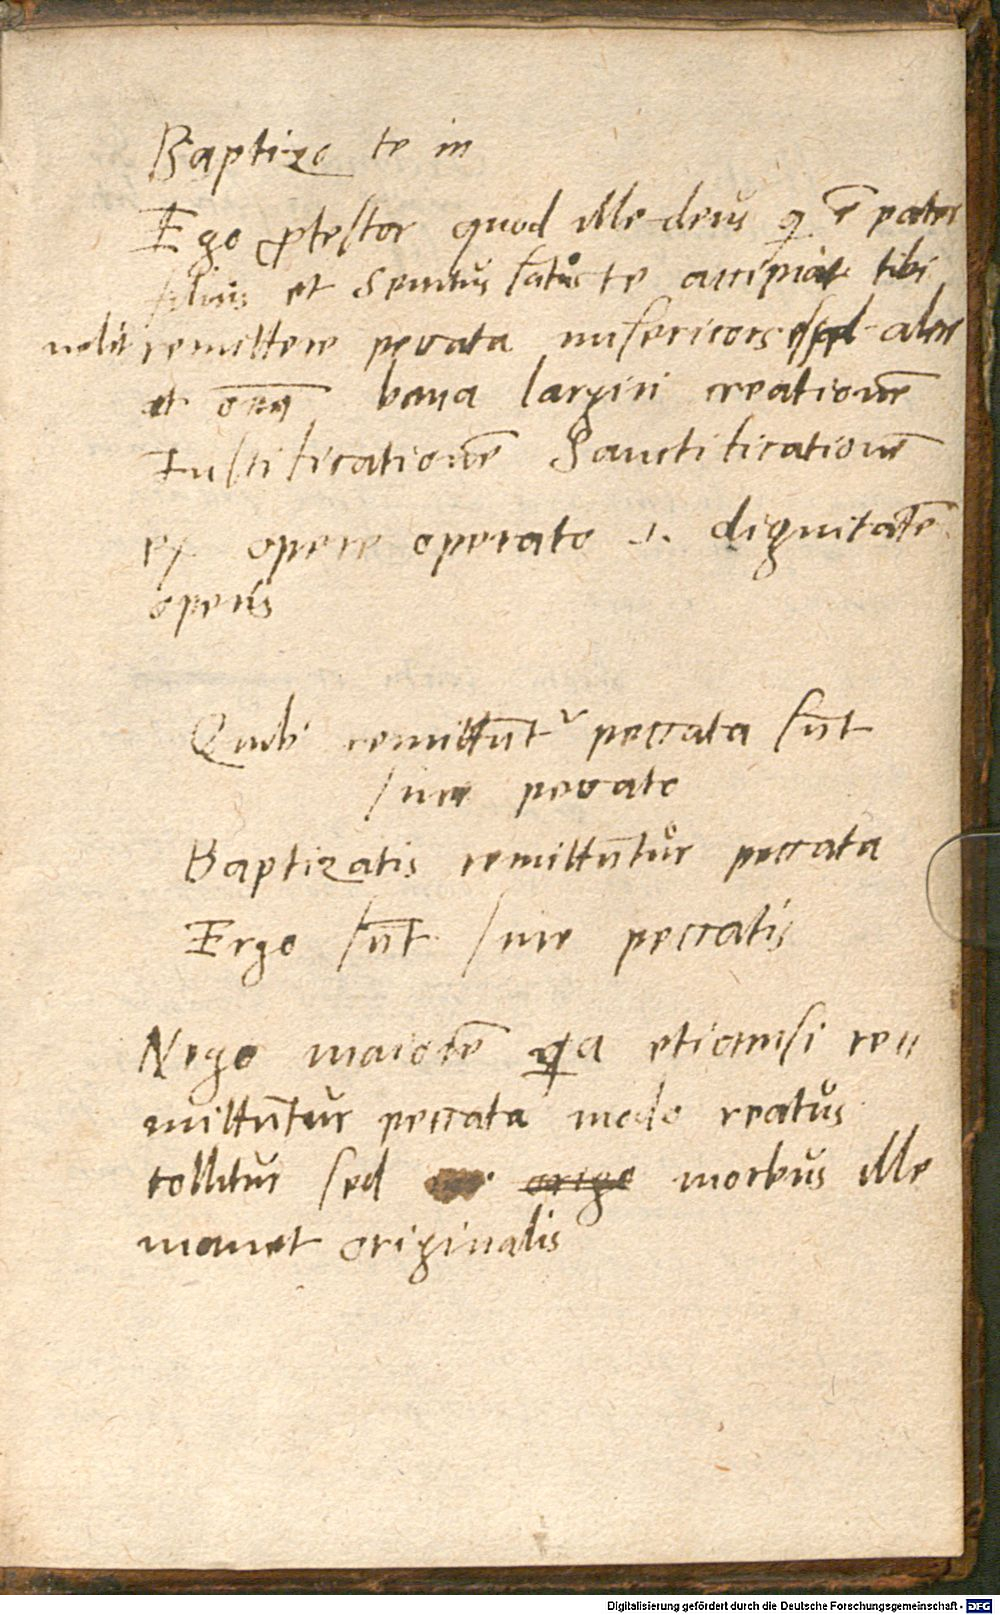 Baptizo te in
Ego ꝓtestor quod ille deus q ē pater
filius et Spiritus satus te accipiat tibi
uelit remittere peccata misericors
et oña bona largiri creationē
Iustificationē Sanctificationē
ex opere operato .i. dignitatē
operis
Quib remittunt᷑ peccata sūt
sine peccato
Baptizatis remittūtur peccata
Ergo sūt sine peccatis
Nego maiorē qa etiamsi re〃
mittūtur peccata modo reatus
tollitur sed origo morbus ille
manet originalis
Digitalisierung gefördert durch die Deutsche Forschungsgemeinschaft - DFG